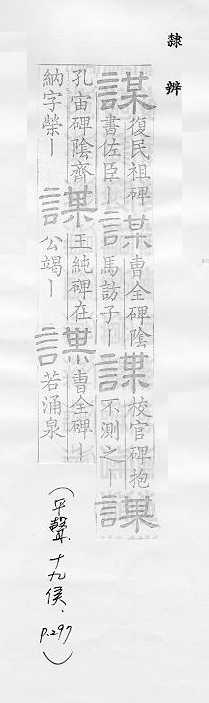 隸辨
謀
復民祖碑
書佐臣丨
謀
曹全碑陰
馬訪子丨
謀
校官碑抱
不測之丨
謀
孔宙碑陰齊
納字榮丨
謀
王純碑在
公竭丨
謀
曹全碑丨
若涌泉
(平聲.十九侯.p.297)